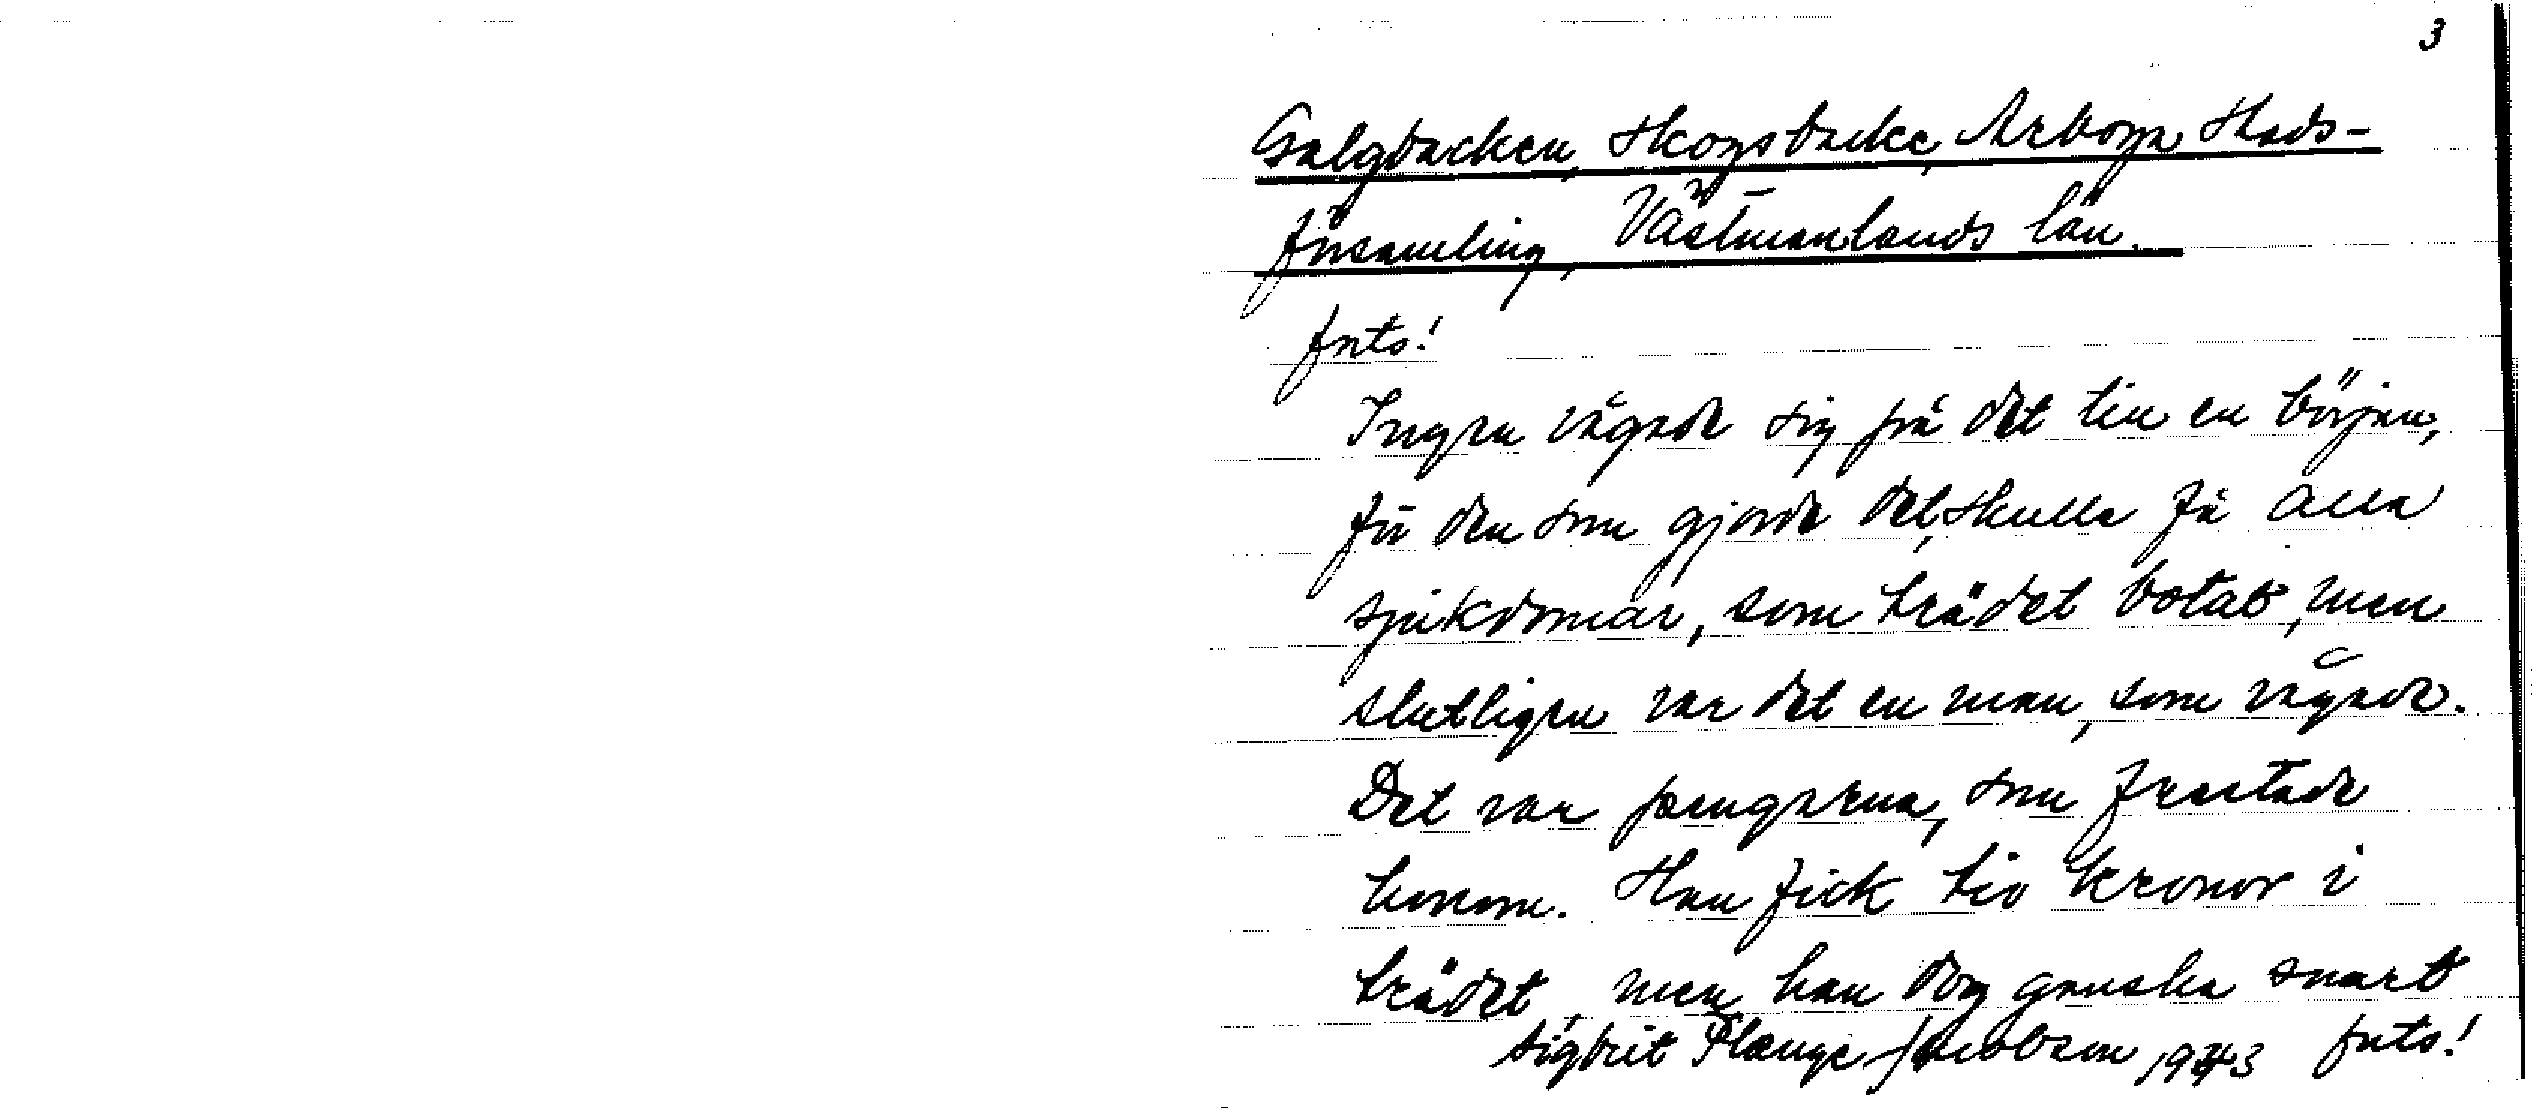 3
Galgbacken, Skogsbacke, Arboga Stads-
församling, Västmanlands län.
forts!
Ingen vågade sig på det till en början,
för den som gjorde det, skulle få alla
sjukdomar, som trädet botat, men
slutligen var det en man, som vågade.
Det var pengarna, som frestade
honom. Han fick tio kronor i
trädet, men han dog ganska snart
Sigbrit Plænge Jacobson 1943 forts!